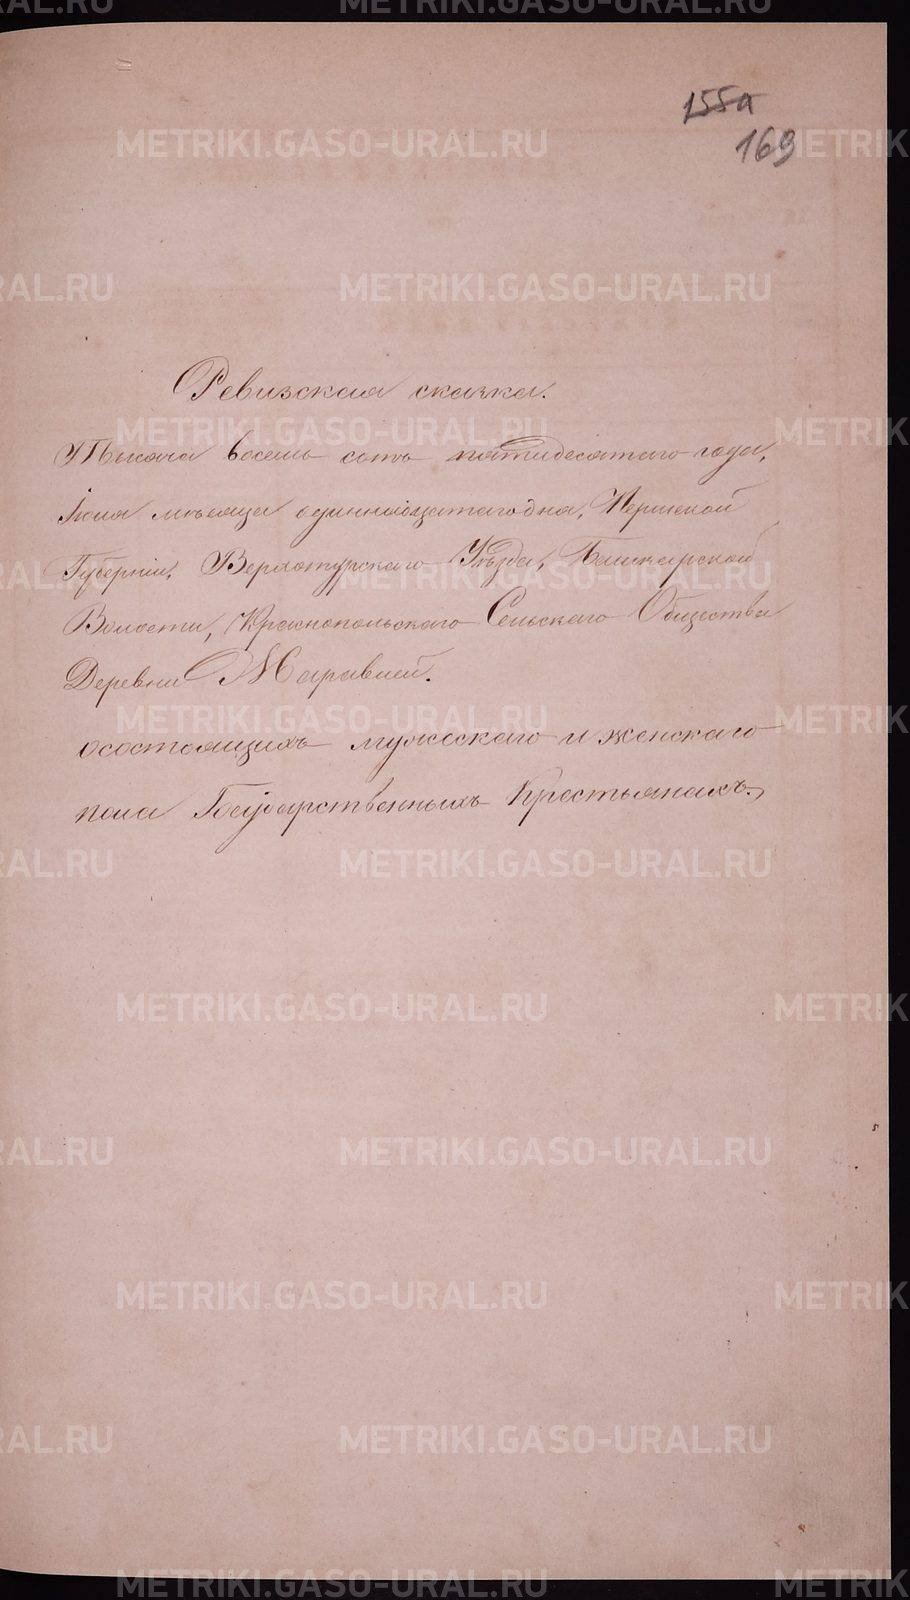 155а
169
Ревизская сказка.
Тысяча восемь сотъ пятидесятаго года,
Іюля мѣсяца одиннадцатагодня, Пермской
Губерніи, Верхотурскаго Уѣзда, Башкарской
Волости, Краснопольскаго Сельскаго Общества
Деревни
осостоящихъ мужескаго и женскаго
пола Государственныхъ Крестьянахъ.
METRIKI.GASO-URAL.RU